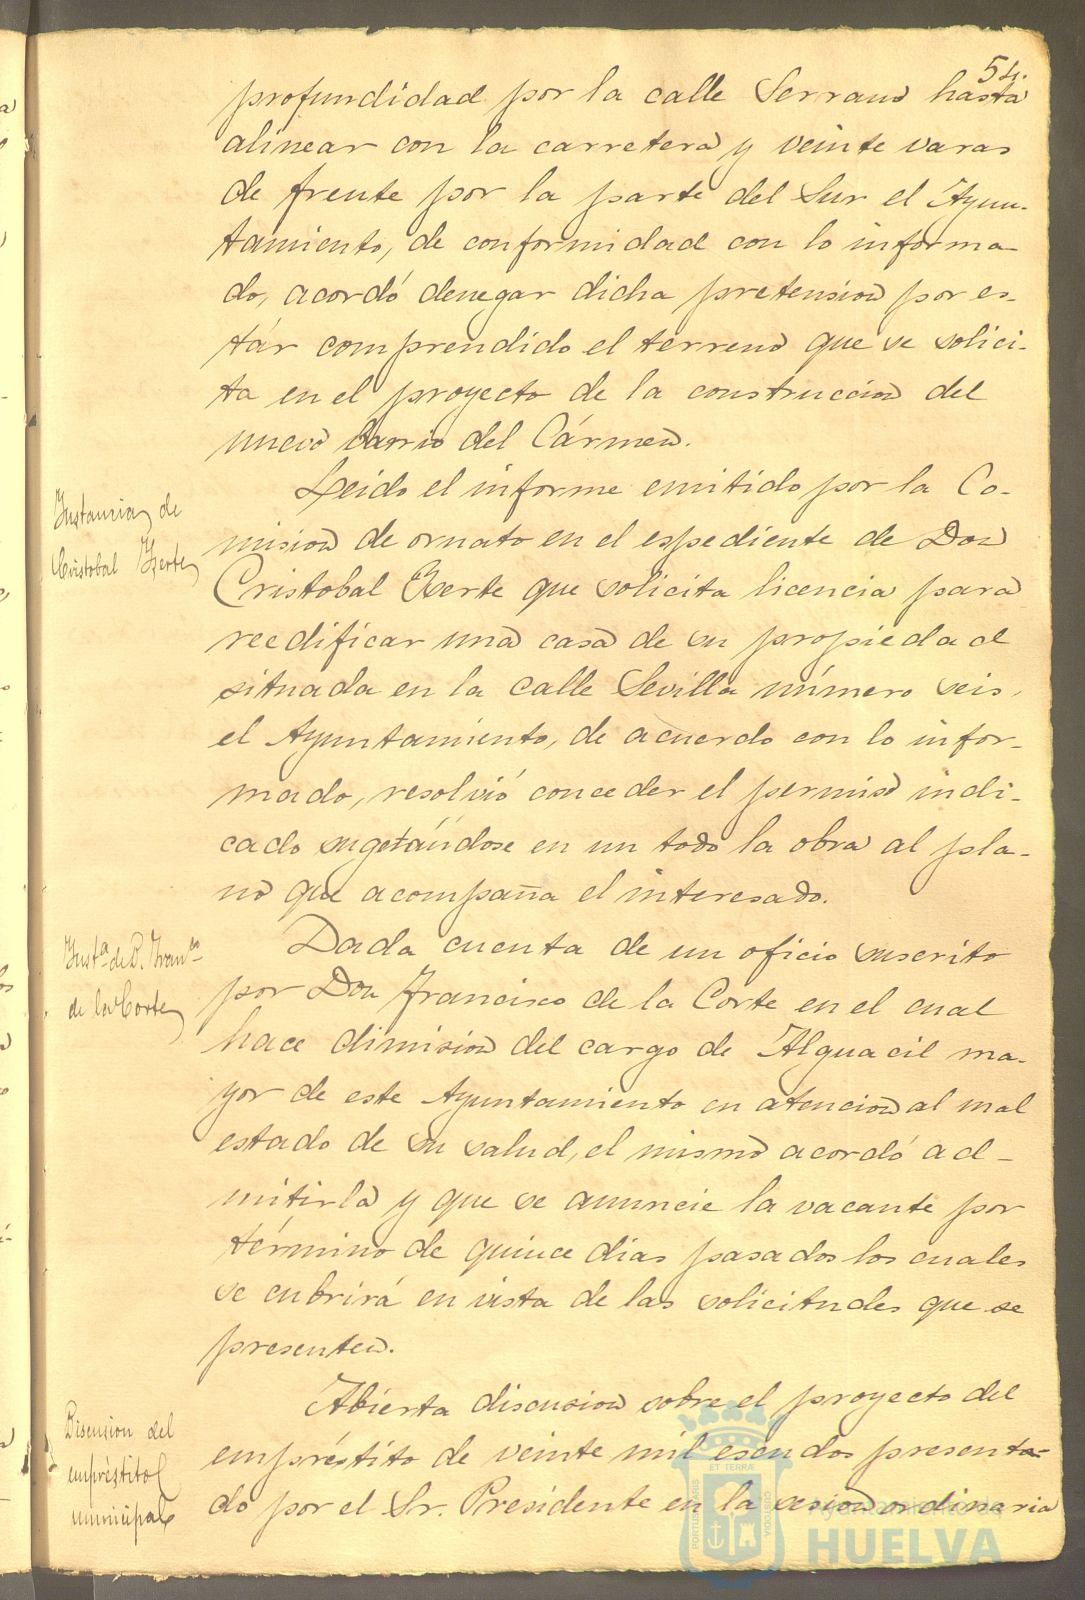 54.
profundidad por la calle Serrano hasta
alinear con la carretera y veinte varas
de frente por la parte del Sur el Ayun-
tamiento, de conformidad con lo informa-
do, acordó denegar dicha pretension por es-
tár comprendido el terreno que se solici-
ta en el proyecto de la construccion del
nuevo barrio del Cármen.
Instancia de
Cristobal
Leido el informe emitido por la Co-
mision de ornato en el espediente de Don
Cristobal que solicita licencia para
reedificar una casa de su propiedad
situada en la calle Sevilla número seis,
el Ayuntamiento, de acuerdo con lo infor-
mado, resolvió conceder el permiso indi-
cado sugetándose en un todo la obra al pla-
no que acompaña el interesado.
Instª de D. Franco
de la Corte
Dada cuenta de un oficio suscrito
por Don Francisco de la Corte en el cual
hace dimision del cargo de Alguacil ma-
yor de este Ayuntamiento en atencion al mal
estado de su salud, el mismo acordó ad-
mitirla y que se anuncie la vacante por
término de quince dias pasados los cuales
se cubrirá en vista de las solicitudes que se
presenten.
Discusion del
empréstito
municipal
Abierta discusion sobre el proyecto del
empréstito de veinte mil escudos presenta-
do por el Sr. Presidente en la sesion ordinaria
Ayuntamiento de
HUELVA